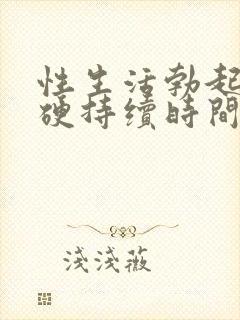 性生活勃起
硬持續時間
淺淺薇